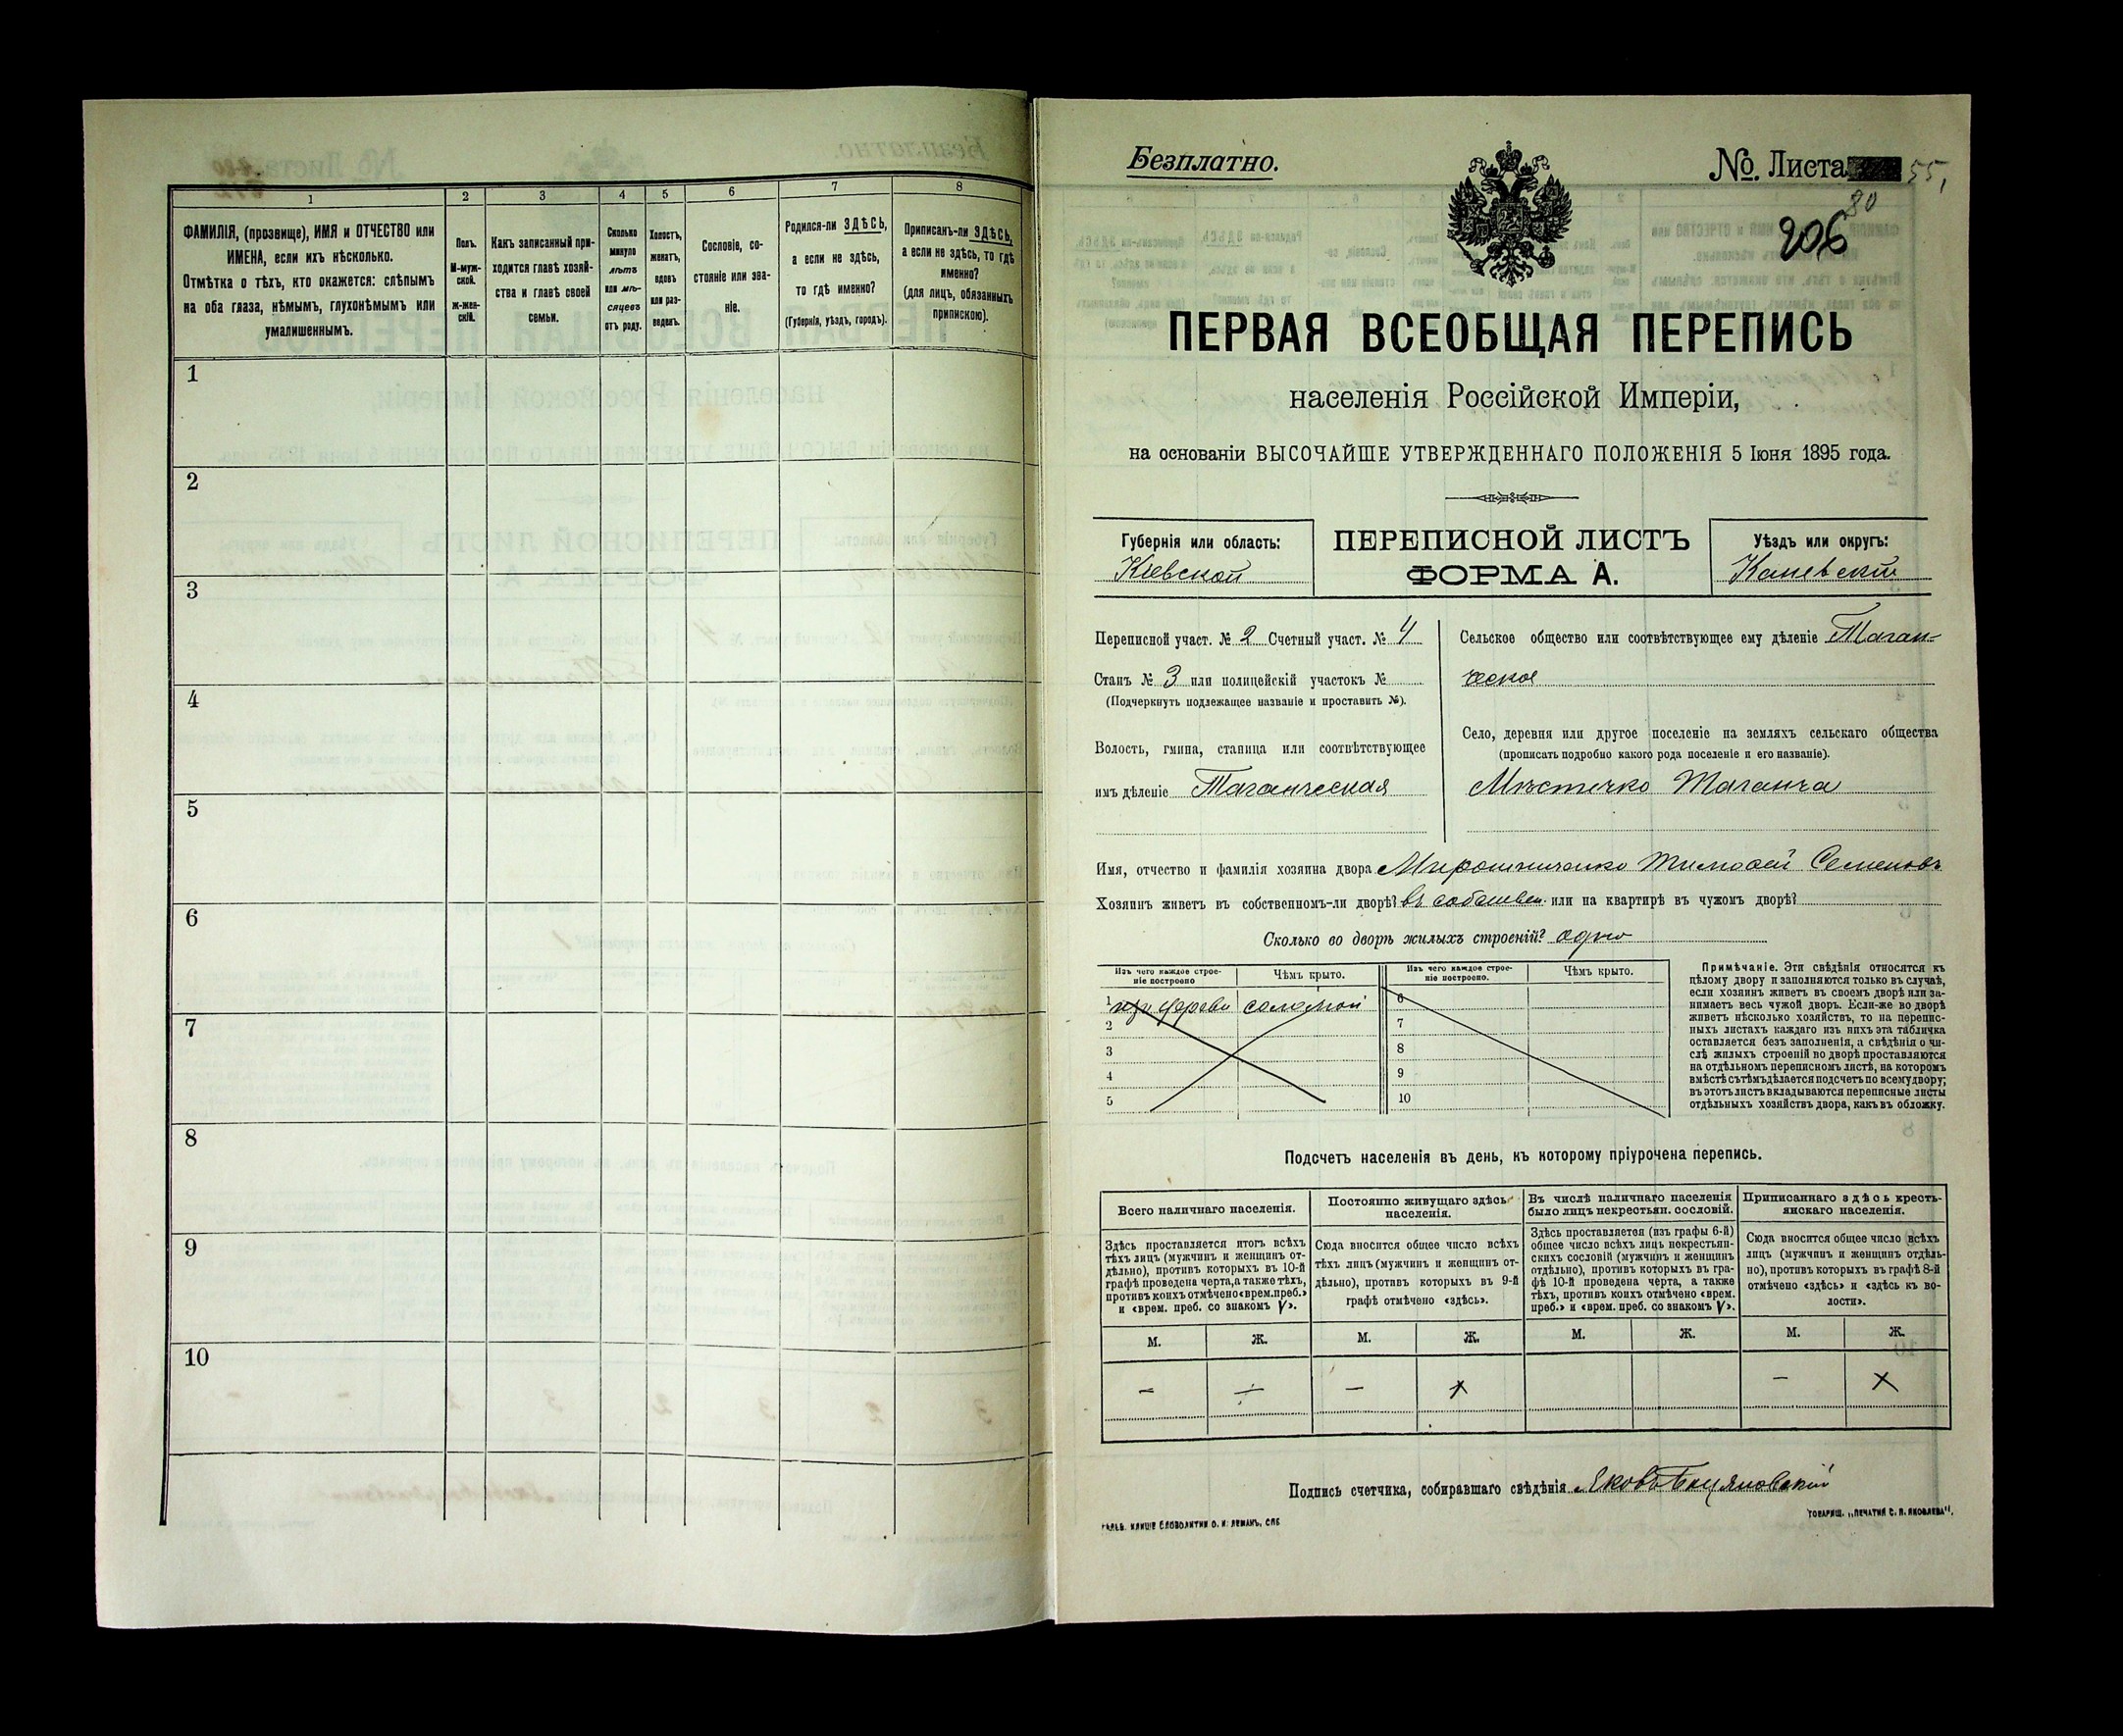 1
2
3
4
5
6
7
8
ФАМИЛІЯ, (прозвище), ИМЯ и ОТЧЕСТВО или
ИМЕНА, если ихъ нѣсколько.
Отмѣтка о тѣхъ, кто окажется: слѣпымъ
на оба глаза, нѣмымъ, глухонѣмымъ или
умалишеннымъ.
Полъ.
М-муж-
ской.
ж-жен-
скій.
Какъ записанный при-
ходится главѣ хозяй-
ства и главѣ своей
семьи.
Сколько
минуло
лѣтъ
или мѣ-
сяцевъ
отъ роду.
Холостъ,
женатъ,
вдовъ
или раз-
веденъ.
Сословіе, со-
стояніе или зва-
ніе.
Родился-ли ЗДѢСЬ,
а если не здѣсь,
то гдѣ именно?
(Губернія, уѣздъ, городъ).
Приписанъ-ли ЗДѢСЬ,
а если не здѣсь, то гдѣ
именно?
(для лицъ, обязанныхъ
припискою).
1
2
3
4
5
6
7
8
9
10
Безплатно.
№ Листа 55,
80
206
ПЕРВАЯ ВСЕОБЩАЯ ПЕРЕПИСЬ
населенія Россійской Имперіи,
на основаніи ВЫСОЧАЙШЕ УТВЕРЖДЕННАГО ПОЛОЖЕНІЯ 5 Іюня 1895 года.
Губернія или область:
Кіевской
ПЕРЕПИСНОЙ ЛИСТЪ
ФОРМА А.
Уѣздъ или округъ:
Каневскій
Переписной участ. № 2 Счетный участ. № 4
Станъ № 3 или полицейскій участокъ №
(Подчеркнуть подлежащее названіе и проставить №).
Волость, гмина, станица или соотвѣтствующее
имъ дѣленіе Таганческая
Сельское общество или соотвѣтствующее ему дѣленіе Таган-
ческое
Село, деревня или другое поселеніе на земляхъ сельскаго общества
(прописать подробно какого рода поселеніе и его названіе).
Мѣстечко Таганча
Имя, отчество и фамилія хозяина двора Мирошниченко Тимофей Семеновъ
Хозяинъ живетъ въ собственномъ-ли дворѣ? въ собствен. или на квартирѣ въ чужомъ дворѣ?
Сколько во дворѣ жилыхъ строеній? одно
Изъ чего каждое строе-
ніе построено
Чѣмъ крыто.
Изъ чего каждое строе-
ніе построено.
Чѣмъ крыто.
1 изъ дерева соломой
2
3
4
5
6
7
8
9
10
Примѣчаніе. Эти свѣдѣнія относятся къ
цѣлому двору и заполняются только въ случаѣ,
если хозяинъ живетъ въ своемъ дворѣ или за-
нимаетъ весь чужой дворъ. Если-же во дворѣ
живетъ нѣсколько хозяйствъ, то на перепис-
ныхъ листахъ каждаго изъ нихъ эта табличка
оставляется безъ заполненія, а свѣдѣнія о чи-
слѣ жилыхъ строеній во дворѣ проставляются
на отдѣльномъ переписномъ листѣ, на которомъ
вмѣстѣ съ тѣмъ дѣлается подсчетъ по всему двору;
въ этотъ листъ вкладываются переписные листы
отдѣльныхъ хозяйствъ двора, какъ въ обложку.
Подсчетъ населенія въ день, къ которому пріурочена перепись.
Всего наличнаго населенія.
Здѣсь проставляется итогъ всѣхъ
тѣхъ лицъ (мужчинъ и женщинъ от-
дѣльно), противъ которыхъ въ 10-й
графѣ проведена черта, а также тѣхъ,
противъ коихъ отмѣчено «врем. преб.»
и «врем. преб. со знакомъ V».
Постоянно живущаго здѣсь
населенія.
Сюда вносится общее число всѣхъ
тѣхъ лицъ (мужчинъ и женщинъ от-
дѣльно), противъ которыхъ въ 9-й
графѣ отмѣчено «здѣсь».
Въ числѣ наличнаго населенія
было лицъ некрестьян. сословій.
Здѣсь проставляется (изъ графы 6-й)
общее число всѣхъ лицъ некрестьян-
скихъ сословій (мужчинъ и женщинъ
отдѣльно), противъ которыхъ въ гра-
фѣ 10-й проведена черта, а также
тѣхъ, противъ коихъ отмѣчено «врем.
преб.» и «врем. преб. со знакомъ V».
Приписаннаго здѣсь кресть-
янскаго населенія.
Сюда вносится общее число всѣхъ
лицъ (мужчинъ и женщинъ отдѣль-
но), противъ которыхъ въ графѣ 8-й
отмѣчено «здѣсь» и «здѣсь къ во-
лости».
М. Ж. М. Ж. М. Ж. М. Ж.
Подпись счетчика, собиравшаго свѣдѣнія Яковъ
КЛИШЕ СЛОВОЛИТНИ О. И. ЛЕМАНЪ, СПБ
ТОВАРИЩ. „ПЕЧАТНЯ С. П. ЯКОВЛЕВА".